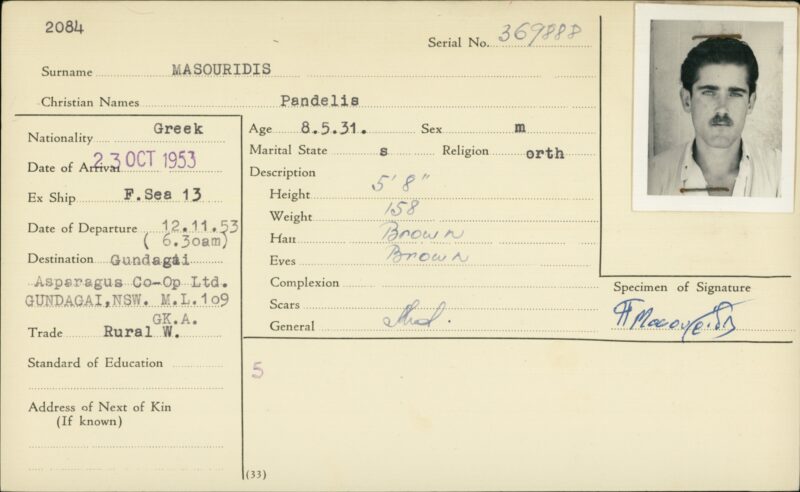 2084
Serial No. 369888
Surname MASOURIDIS
Christian Names Pandelis
Nationality Greek
Date of Arrival 23 OCT 1953
Ex Ship F.Sea 13
Date of Departure 12.11.53
( 6.30am)
Destination Gundagai
Asparagus Co-Op Ltd.
GUNDAGAI,NSW. M.L.109
GK.A.
Trade Rural W.
Standard of Education
Address of Next of Kin
(If known)
Age 8.5.31. Sex m
Marital State s Religion orth
Description
Height 5' 8"
Weight 158
Hair Brown
Eyes Brown
Complexion
Scars
General
5
(33)
Specimen of Signature